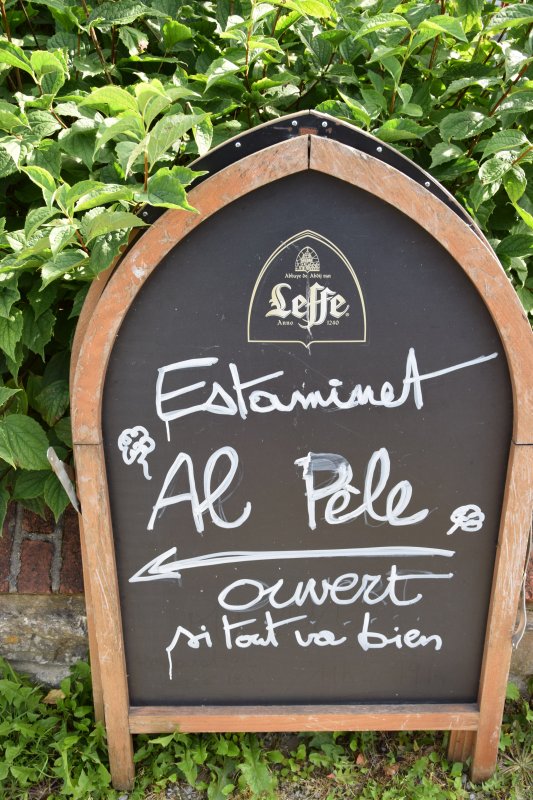 Abbaye de Abdij van
Leffe
Anno 1240
Estaminet
Al Pèle
ouvert
si tout va bien